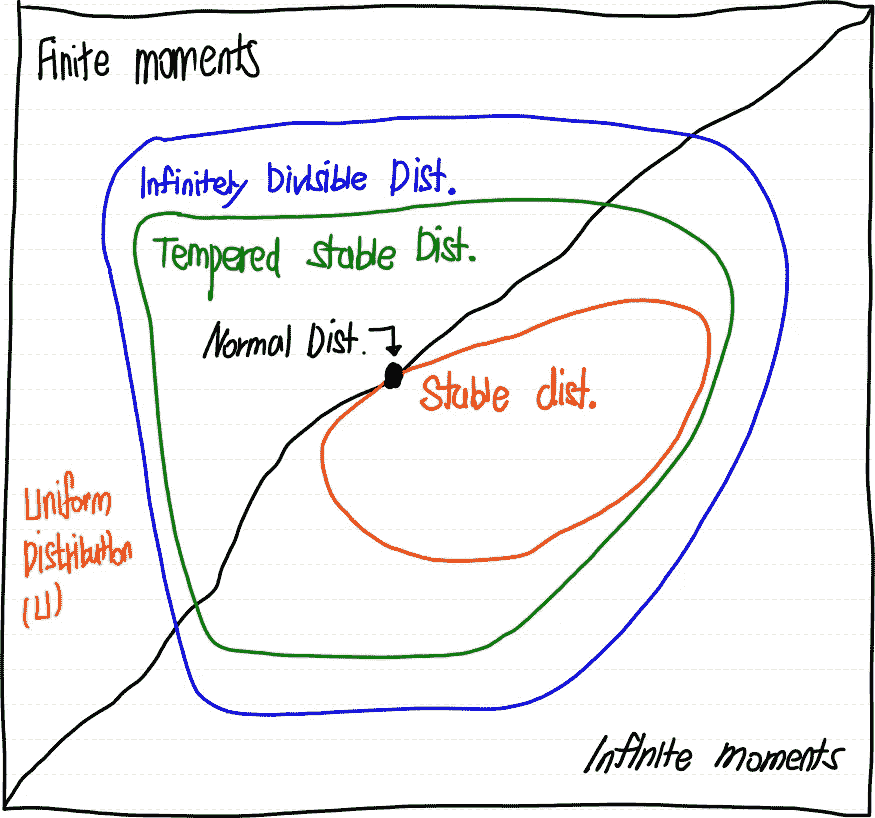 Finite moments
Infinitely Divisible Dist.
Tempered stable Dist.
Normal Dist.
Stable dist.
Uniform
Distribution
(U)
Infinite moments